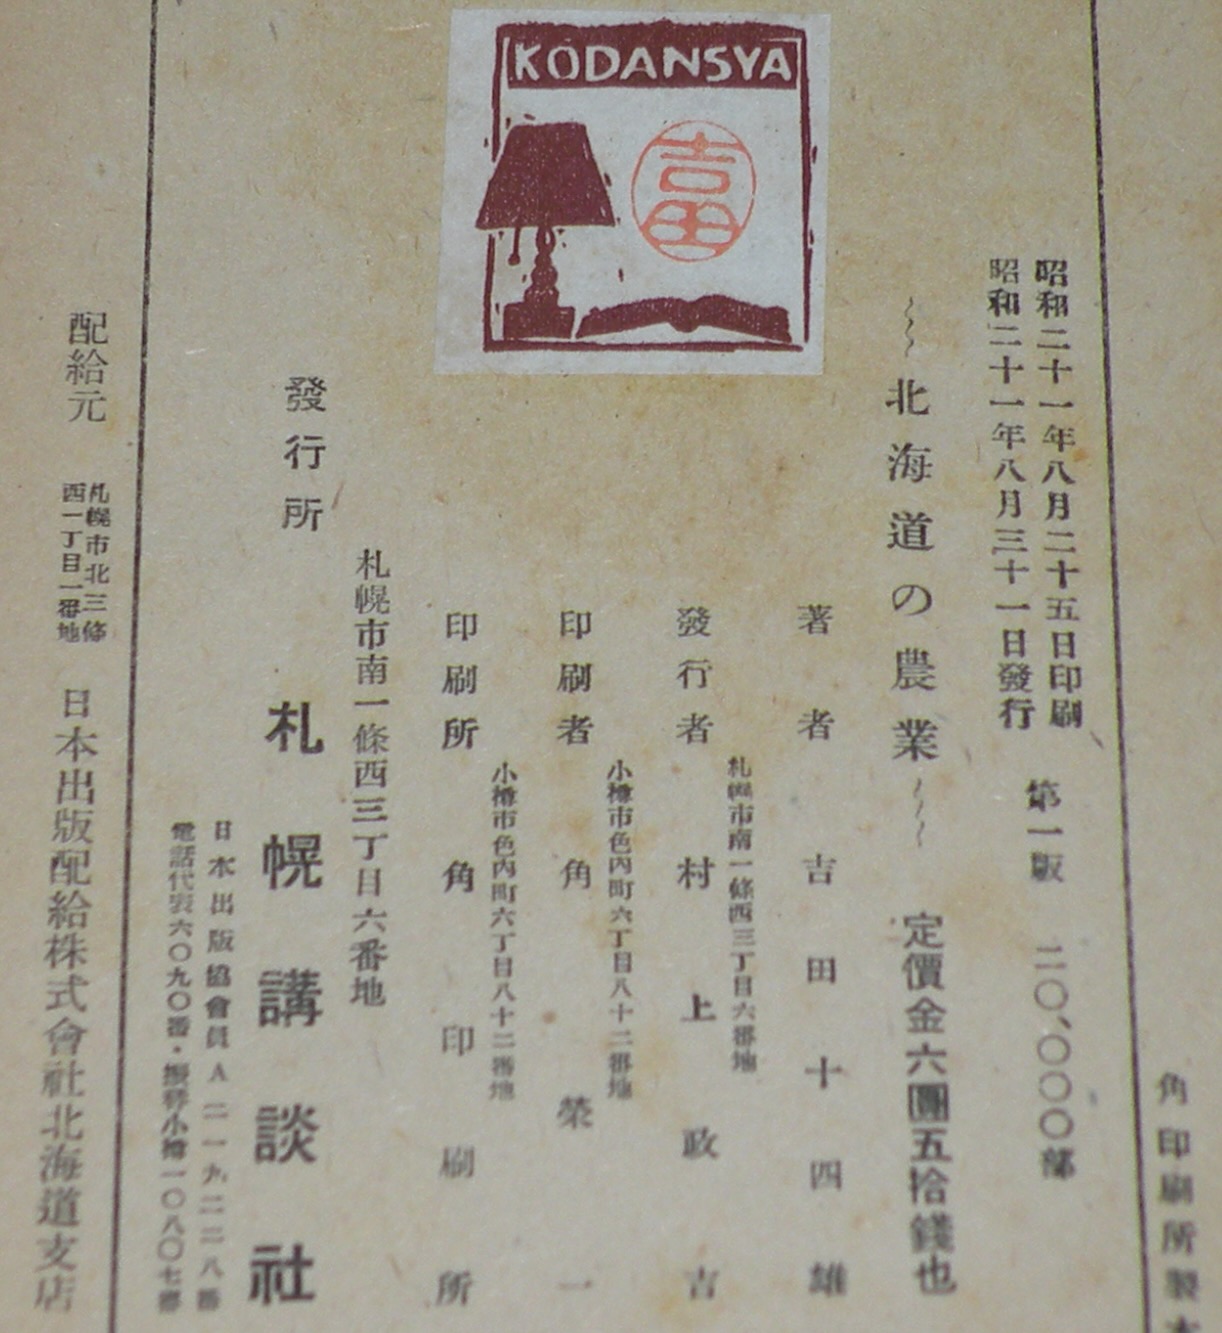 KODANSYA
吉田
角印刷所製本
昭和二十一年八月二十五日印刷
昭和二十一年八月三十一日發行
第一版 二〇、〇〇〇部
北海道の農業 定價金六圓五拾錢也
著者 吉田十四雄
札幌市南一條西三丁目六番地
發行者 村上政吉
小樽市色内町六丁目八十二番地
印刷者 角榮一
小樽市色内町六丁目八十二番地
印刷所 角印刷所
札幌市南一條西三丁目六番地
發行所 札幌講談社
日本出版協會員A二一九二二八番
電話代表六〇九〇番・振替小樽一〇八〇七番
配給元 札幌市北三條
西一丁目一番地
日本出版配給株式會社北海道支店